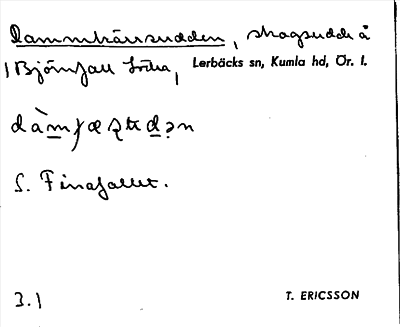 Dammkärrsudden, skogsudde å
Björnfall Södra, Lerbäcks sn, Kumla hd, Ör. l.
S. Finafallet.
3.1 T. ERICSSON